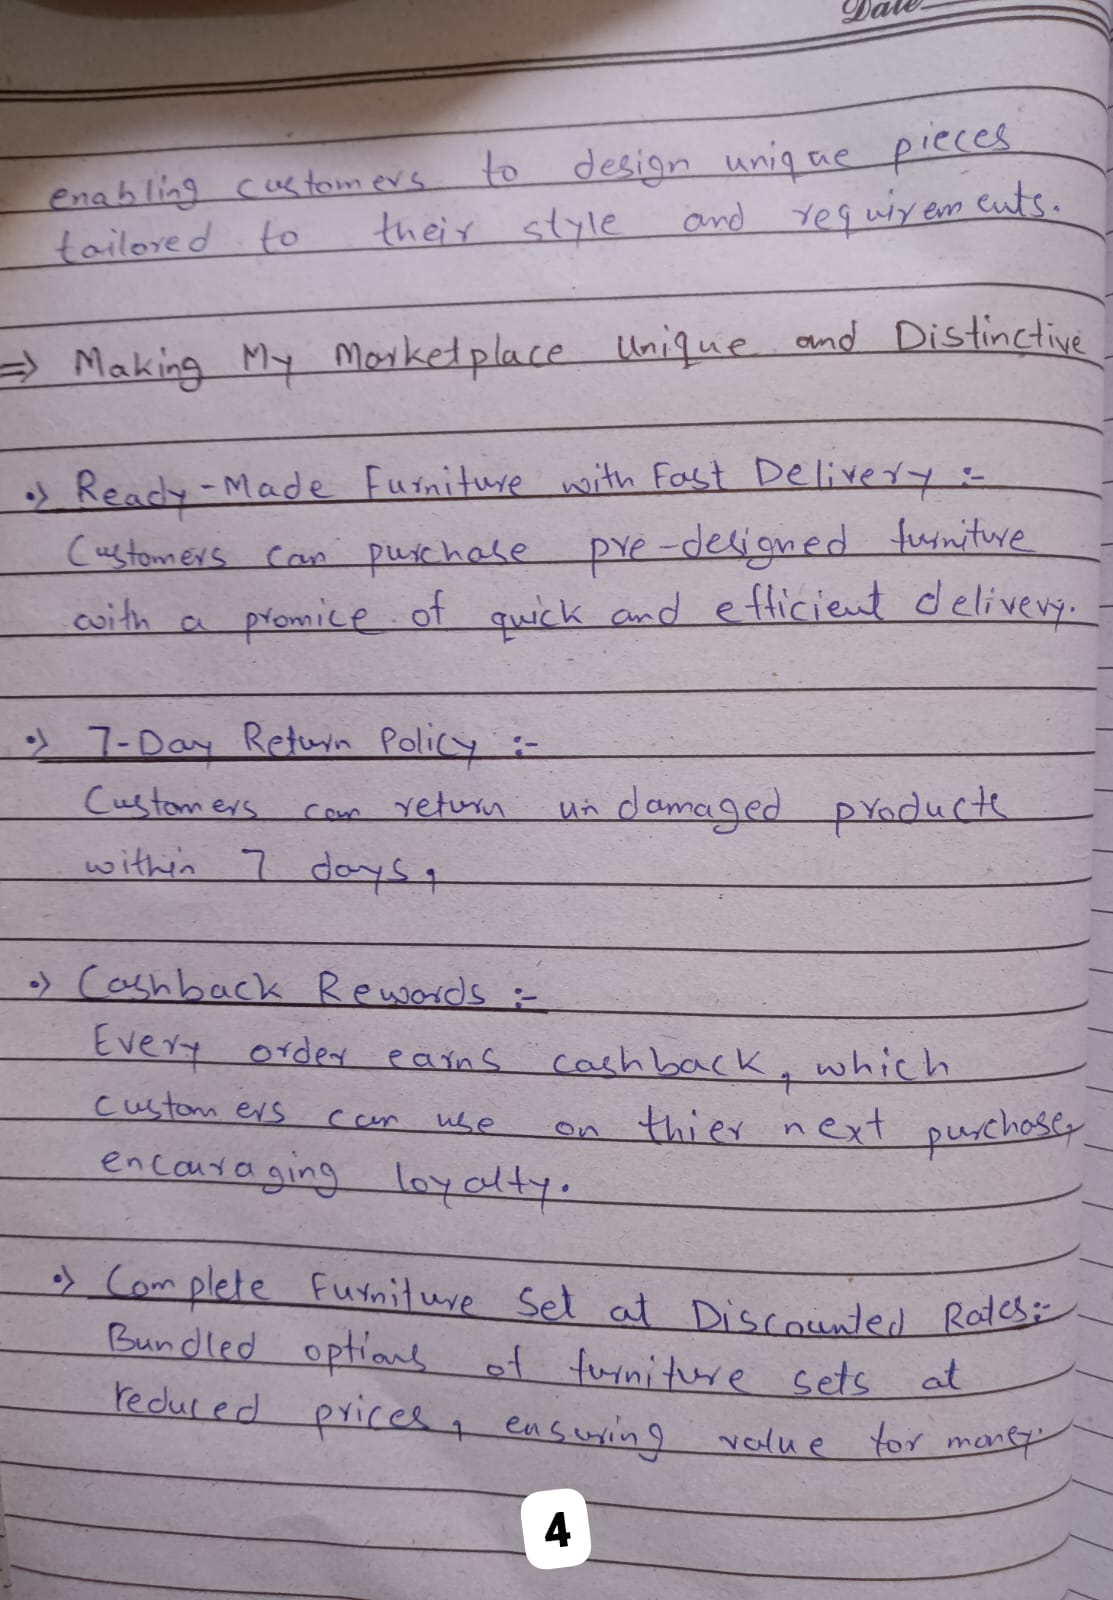 Date
enabling customers to design unique pieces
tailored to their style and requirements.
⇒ Making My Marketplace Unique and Distinctive
•) Ready-Made Furniture with Fast Delivery :-
Customers can purchase pre-designed furniture
with a promice of quick and efficient delivery.
•) 7-Day Return Policy :-
Customers can return undamaged products
within 7 days,
•) Cashback Rewards :-
Every order earns cashback, which
customers can use on thier next purchase,
encouraging loyalty.
•) Complete Furniture Set at Discounted Rates:-
Bundled options of furniture sets at
reduced prices, ensuring value for money.
4